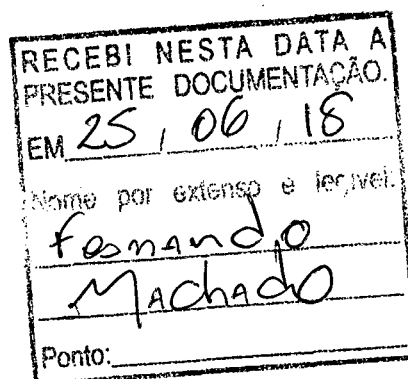 RECEBI NESTA DATA A
PRESENTE DOCUMENTAÇÃO.
EM 25 / 06 / 18
Nome por extenso e legível.
Fernando
Machado
Ponto: